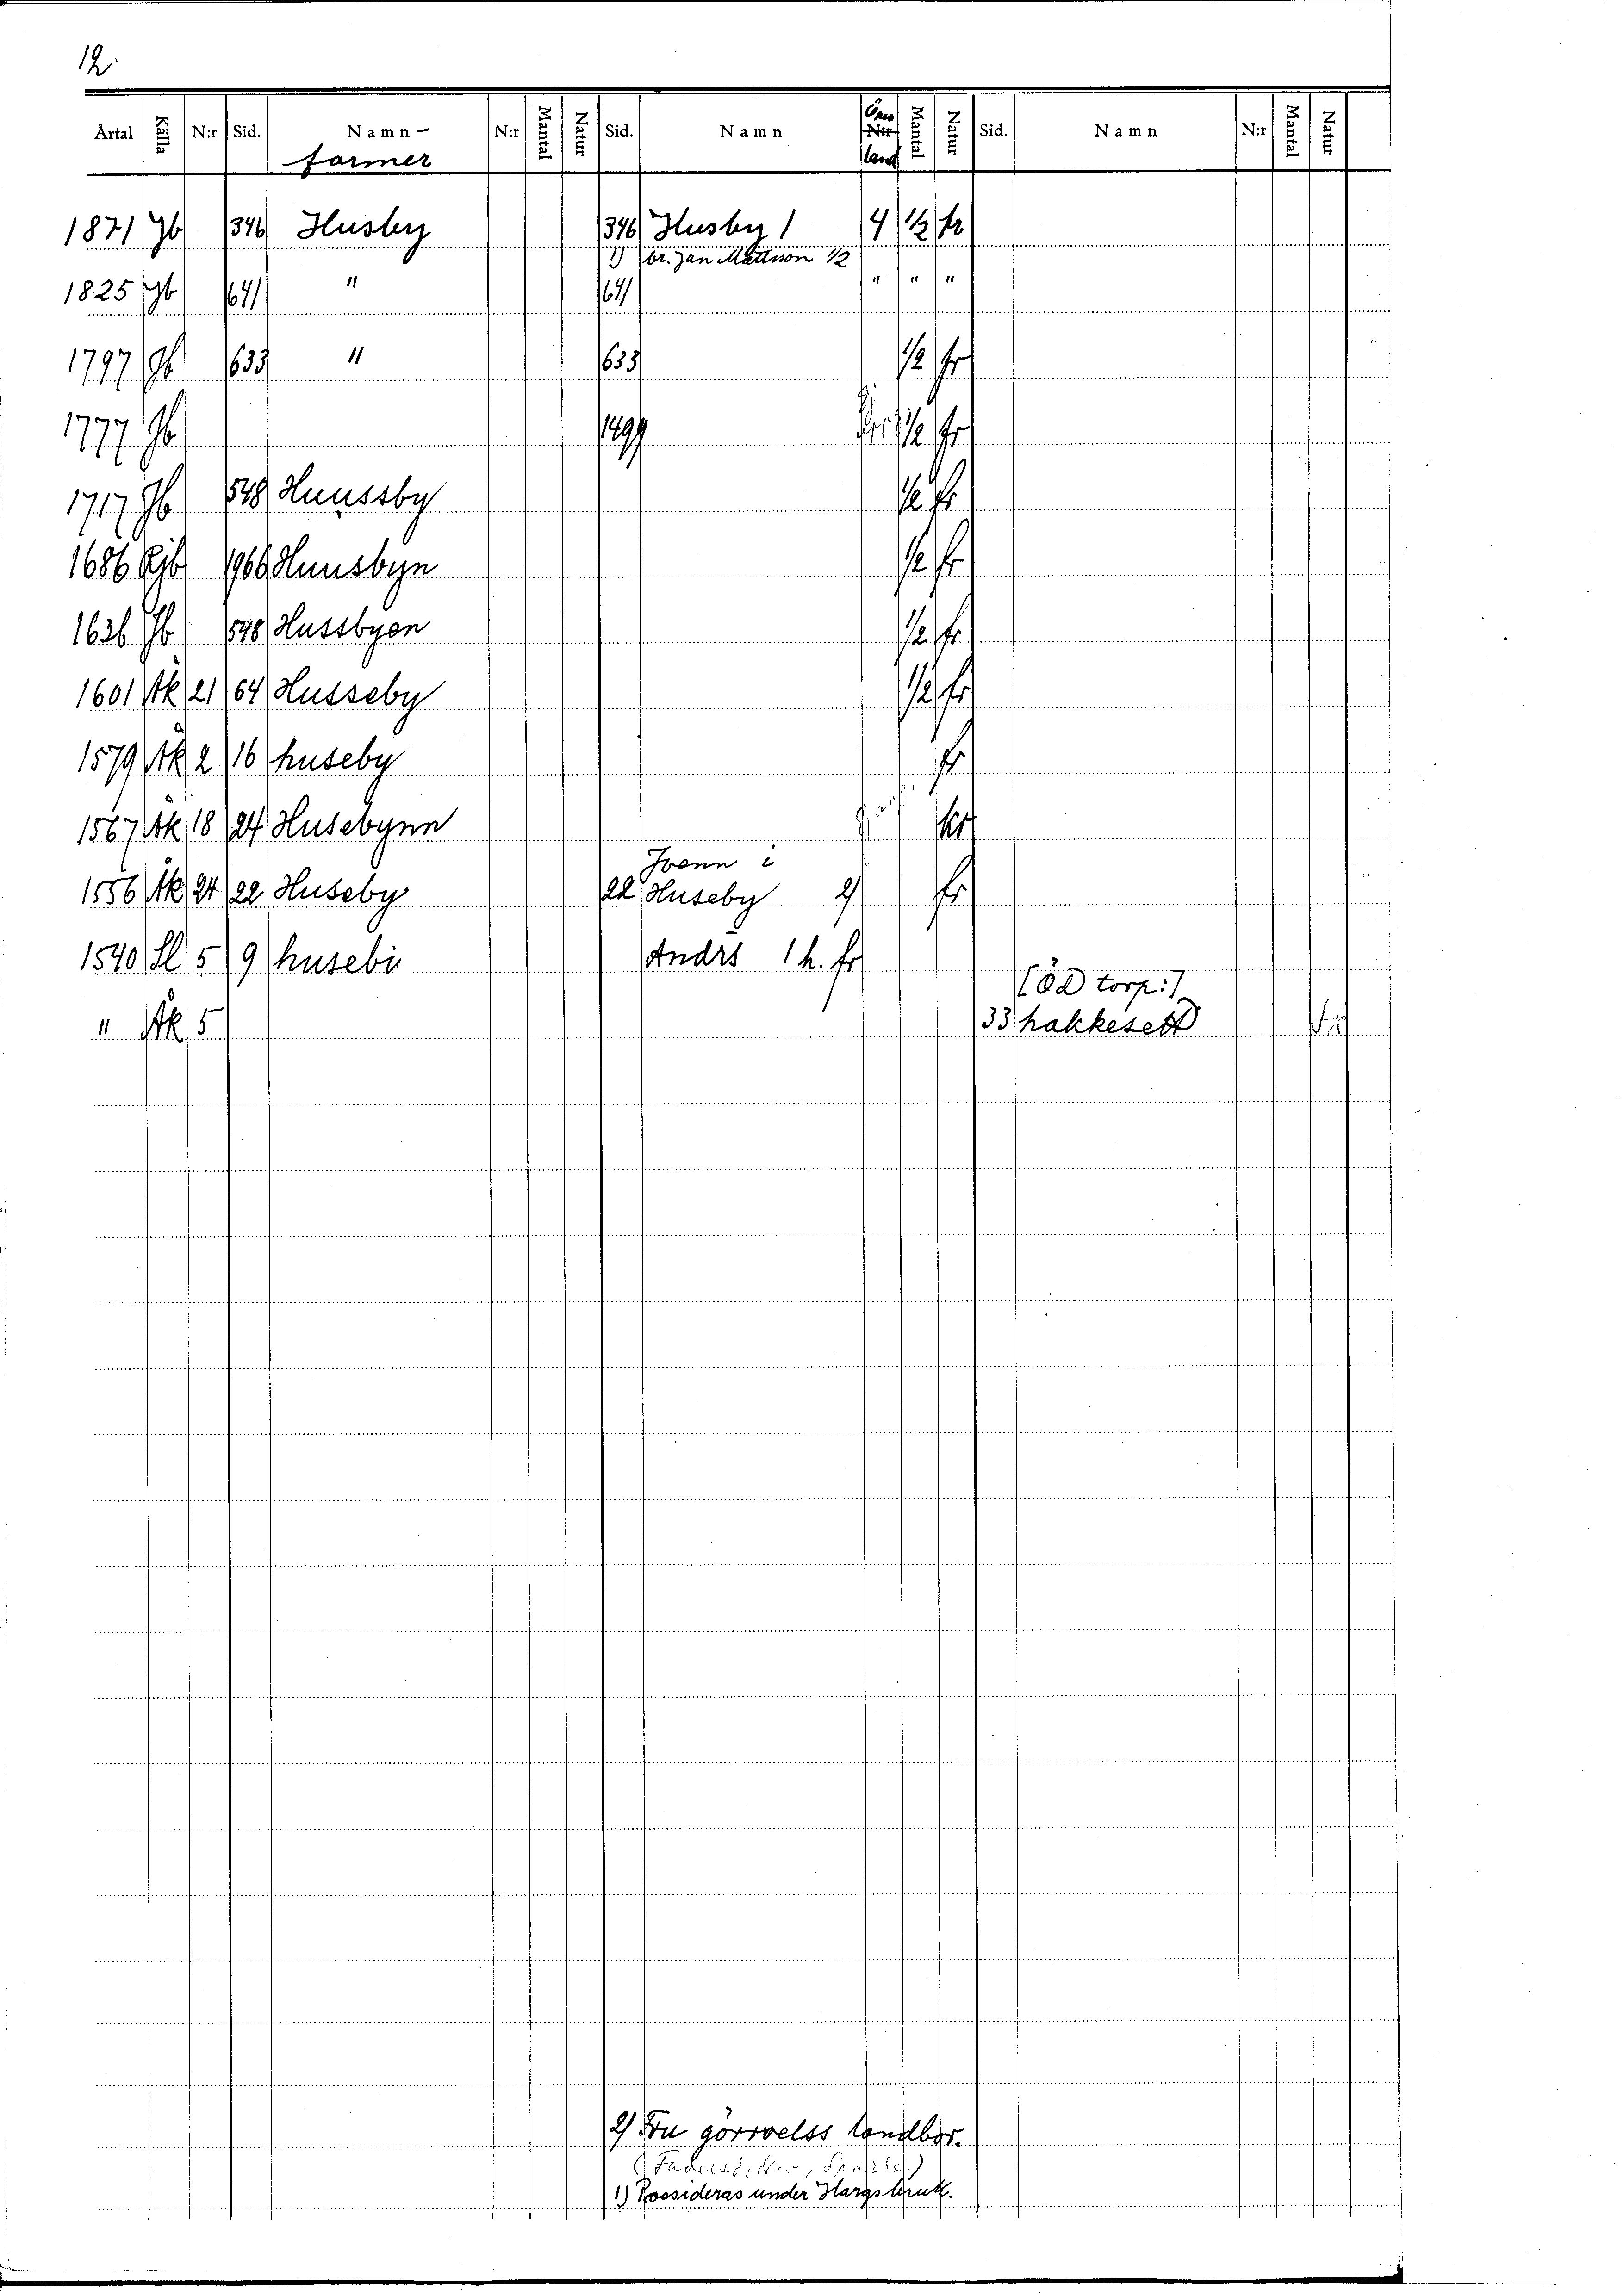 12.
Årtal Källa N:r Sid. Namn- N:r Mantal Natur Sid. Namn Öres N:r Mantal Natur Sid. Namn N:r Mantal Natur
former land
1871 Jb 346 Husby 346 Husby 1 4 1/2 fr
1) br. Jan Mattsson 1/2
1825 Jb 641 " 641 " " "
1797 Jb 633 " 633 1/2 fr
1777 Jb 1499 1/2 fr
1717 Jb 548 Huussby 1/2 fr
1686 Rjb 1966 Huusbyn 1/2 fr
1636 Jb 548 Hussbyen 1/2 fr
1601 Åk 21 64 Husseby 1/2 fr
1579 Åk 2 16 huseby fr
1567 Åk 18 24 Husebynn
Joenn i
1556 Åk 24 22 Huseby 22 Huseby 2) fr
1540 Sl 5 9 husebi Andrs 1 h. fr
[Öd torp:]
" Åk 5 33 hakkesett
2) Fru görvelss landbor.
1) Possideras under Hargs bruk.